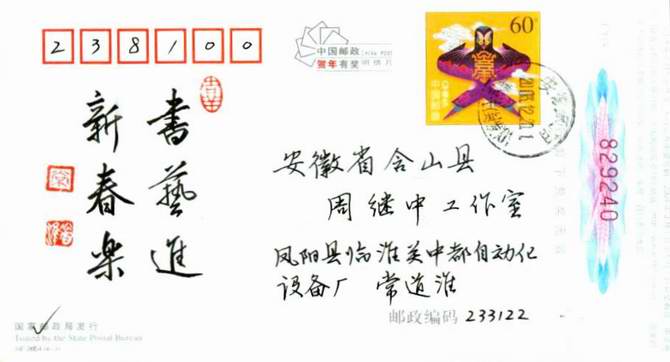 238100
中国邮政 CHINA POST
贺年有奖 明信片
60分
中国邮政
829240
書藝進
新春樂
安徽省含山县
周继中工作室
凤阳县临淮关中都自动化
设备厂 常道淮
邮政编码 233122
国家邮政局发行
Issued by the State Postal Bureau